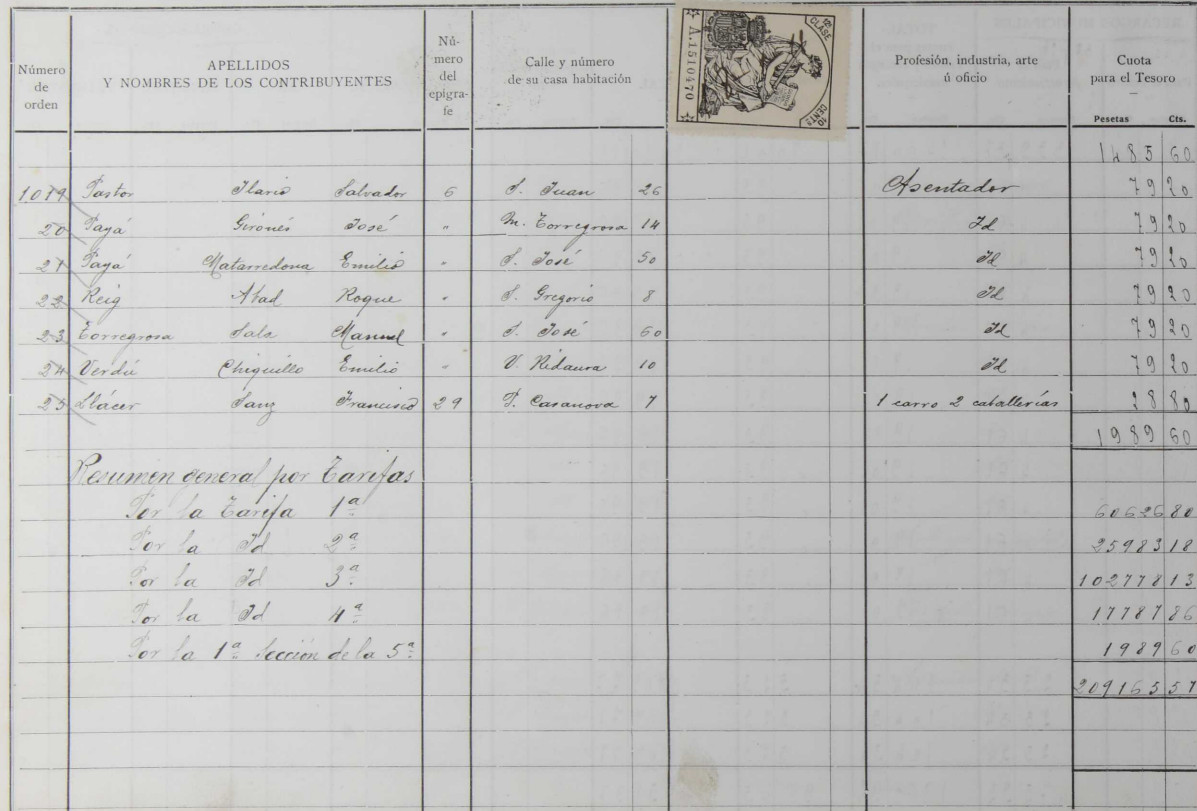 Número de orden
APELLIDOS Y NOMBRES DE LOS CONTRIBUYENTES
Nú-mero del epígra-fe
Calle y número de su casa habitación
A.1510470
12ª CLASE
10 CENTS
Profesión, industria, arte ú oficio
Cuota para el Tesoro
Pesetas Cts.
1485 60
1.019 Pastor Ilario Salvador 6 S. Juan 26 Asentador 79 20
20 Payá Gironés José " M. Torregrosa 14 Id 79 20
21 Payá Matarredona Emilio " S. José 50 Id 79 20
22 Reig Abad Roque " S. Gregorio 8 Id 79 20
23 Torregrosa Sala Manuel " S. José 60 Id 79 20
24 Verdú Chiquillo Emilio " V. Ridaura 10 Id 79 20
25 Llácer Sanz Francisco 29 P. Casanova 7 1 carro 2 caballerías 28 80
1989 60
Resumen general por Tarifas
Por la Tarifa 1ª 60626 80
Por la Id 2ª 25983 18
Por la Id 3ª 102778 13
Por la Id 4ª 17787 86
Por la 1ª Sección de la 5ª 1989 60
209165 57